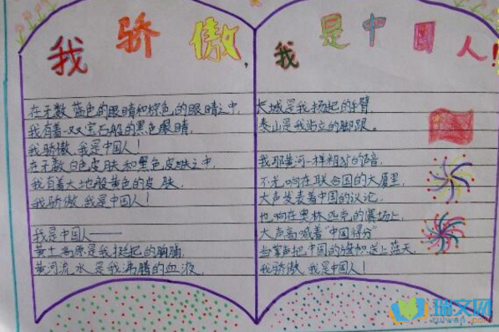 我骄傲,我是中国人!
在无数蓝色的眼睛和棕色的眼睛之中,
我有着一双宝石般的黑色眼睛,
我骄傲,我是中国人!
在无数白色皮肤和黑色皮肤之中,
我有着大地般黄色的皮肤,
我骄傲,我是中国人!
我是中国人——
黄土高原是我挺起的胸脯,
黄河流水是我沸腾的血液,
长城是我扬起的手臂,
泰山是我站立的脚跟。
我那黄河一样粗犷的声音,
不光响在联合国的大厦里,
大声发表着中国的议论,
也响在奥林匹克的赛场上,
大声高喊着"中国得分"
当掌声把中国的旗帜送上蓝天,
我骄傲,我是中国人!
瑞文网